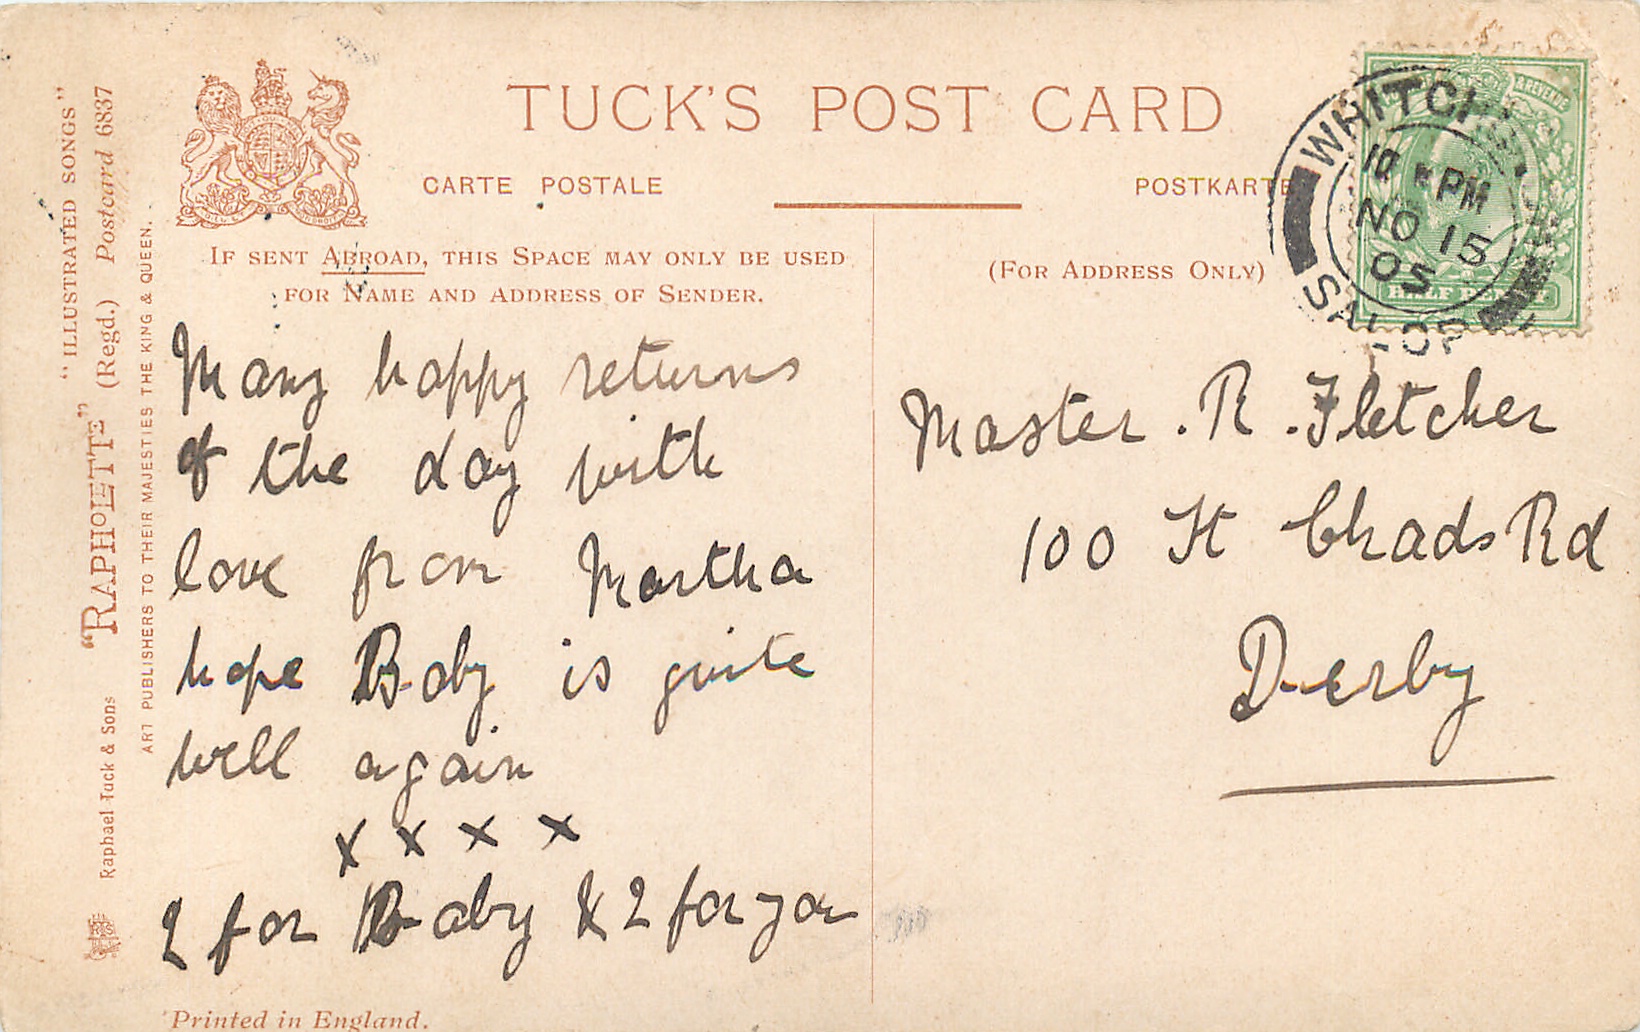 TUCK'S POST CARD
CARTE POSTALE
POSTKARTE
IF SENT ABROAD, THIS SPACE MAY ONLY BE USED
FOR NAME AND ADDRESS OF SENDER.
(FOR ADDRESS ONLY)
"ILLUSTRATED SONGS"
Raphael Tuck & Sons "RAPHOLETTE" (Regd.) Postcard 6837
ART PUBLISHERS TO THEIR MAJESTIES THE KING & QUEEN.
WHITCH
PM
NO 15
05
SALOP
& REVENUE
HALF PENNY
Many happy returns
of the day with
love from Martha
hope Baby is quite
well again
x x x x
2 for Baby & 2 for you
Master . R . Fletcher
100 St Chads Rd
Derby
Printed in England.